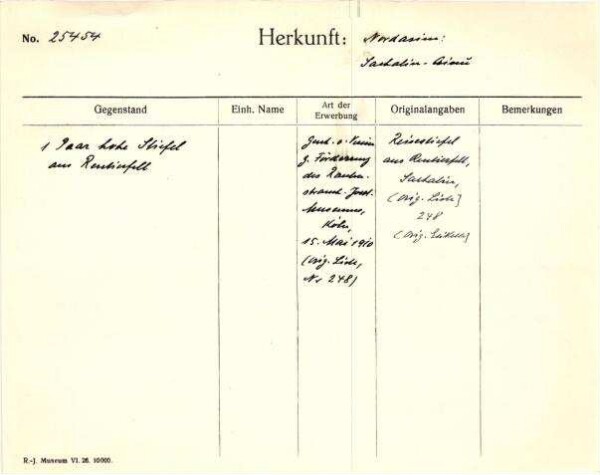 No. 25454
Herkunft: Nordasien:
Sachalin-Ainu
Gegenstand
Einh. Name
Art der Erwerbung
Originalangaben
Bemerkungen
1 Paar hohe Stiefel
aus Rentierfell
Gesch. v. Verein
z. Förderung
des Rauten-
strauch-Joest-
Museums,
Köln,
15. Mai 1910
(Orig. Liste,
No 248)
Reisestiefel
aus Rentierfell,
Sachalin,
(Orig. Liste)
248
(Orig. Etikett)
R.-J. Museum VI. 26. 10000.